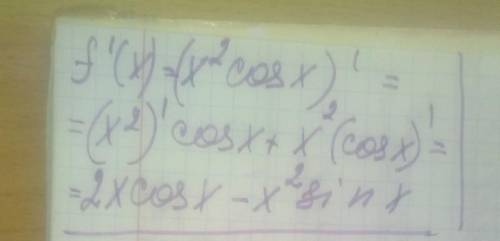 f'(x)=(x²cosx)' =
=(x²)'cosx+x²(cosx)'=
=2xcosx-x²sin x